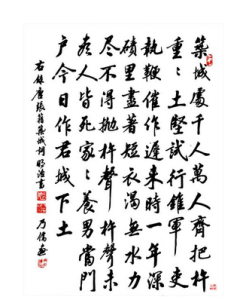 築城處千人萬人齊把杵
重〻土堅試行錐軍吏
執鞭催作遲來時一年深
磧里盡著短衣渴無水力
尽不得抛杵聲杵聲未
尽人皆死家〻養男當門
户今日作君城下土
右錄唐張籍築城詞